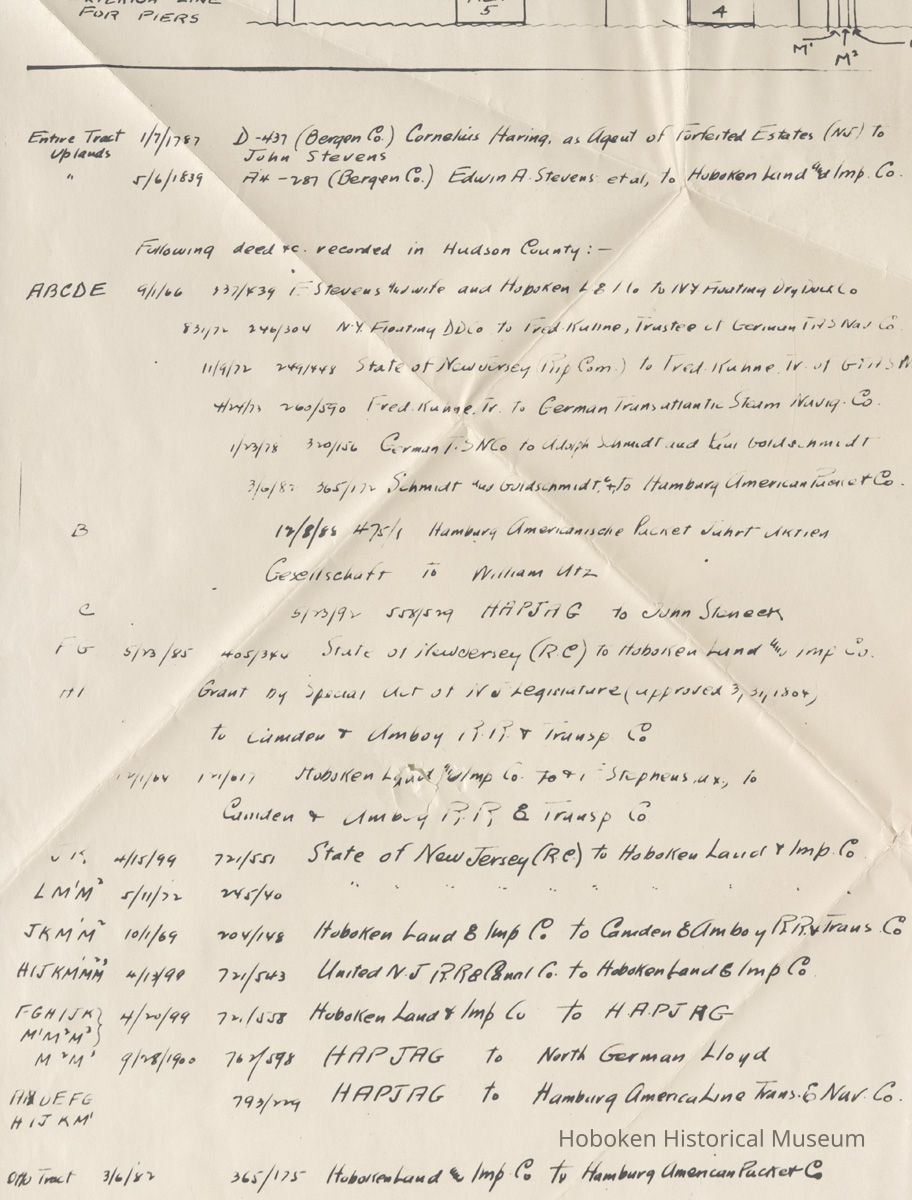 FOR PIERS
5
4
M¹
M²
Entire Tract 1/7/1787 D-437 (Bergen Co.) Cornelius Haring, as Agent of Forfeited Estates (NJ) to
Uplands John Stevens
" 5/6/1839 A4-287 (Bergen Co.) Edwin A. Stevens et al, to Hoboken Land and Imp. Co.
Following deed &c. recorded in Hudson County:-
ABCDE 9/1/66 439 Stevens and wife and Hoboken L & I Co to NY Floating Dry Dock Co
831/72 246/304 N.Y. Floating DD Co. to Fred. Kuhne, Trustee of German T.A.S Nav Co.
11/9/72 249/448 State of New Jersey (Rip Com.) to Fred. Kuhne, Tr. of
4/24/73 260/590 Fred. Kuhne, Tr. to German Transatlantic Steam Navig. Co.
1/23/78 320/156 German T.SNCo to Adolph Schmidt and Goldschmidt
3/6/82 365/172 Schmidt and Goldschmidt, to Hamburg American Packet Co.
B 12/8/88 475/1 Hamburg Americanische Packet Fahrt Aktien
Gesellschaft to William Utz
C 5/23/92 558/529 HAPJAG to John Steneck
FG 5/23/85 405/344 State of New Jersey (R.C) to Hoboken Land and Imp Co.
HI Grant by Special Act of NJ Legislature (approved 3/31/1864)
to Camden & Amboy R.R. & Transp Co
12/1/64 Hoboken Land and Imp Co. Stephens, ux., to
Camden & Amboy R.R. & Transp Co
JK 4/15/99 721/551 State of New Jersey (RC) to Hoboken Land & Imp. Co.
LM¹M² 5/11/72 245/40 " " " " " " " "
JKM¹M² 10/1/69 204/148 Hoboken Land & Imp Co to Camden & Amboy R.R. & Trans. Co
HIJKM¹M²M³ 4/13/99 721/543 United N.J. R.R & Canal Co. to Hoboken Land & Imp Co.
FGHIJK} 4/20/99 721/558 Hoboken Land & Imp Co to H.A.P.J AG
M¹M²M³}
M²M³ 9/28/1900 762/598 HAPJAG to North German Lloyd
DEFG 793/229 HAPJAG to Hamburg America Line Trans. & Nav. Co.
HIJKM¹
Tract 3/6/82 365/175 Hoboken Land and Imp. Co to Hamburg American Packet Co
Hoboken Historical Museum